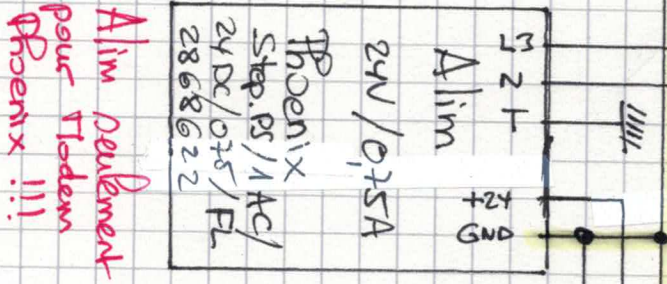 Alim
24V/0,75A
Phoenix
Step.PS/1AC/
24DC/0.75/FL
2868622
+24
GND
Alim seulement
pour Modem
Phoenix !!!